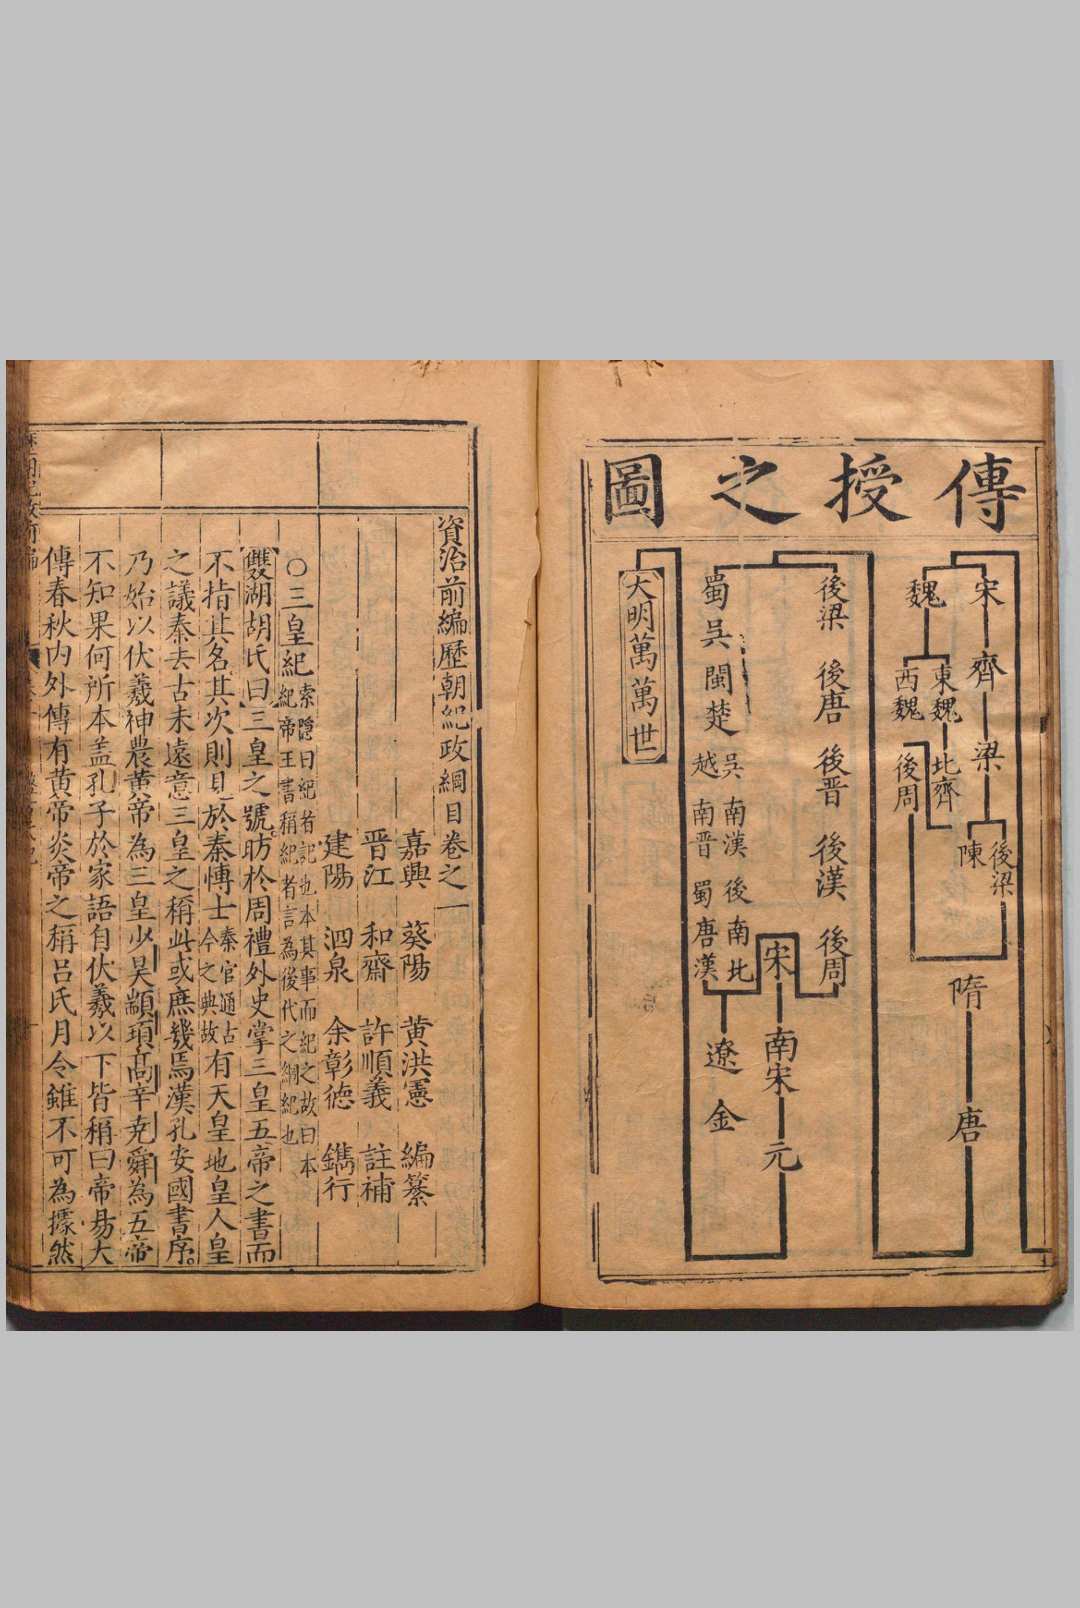 傳授之圖
宋
齊
梁
後梁
陳
魏
東魏
西魏
北齊
後周
隋
唐
後梁
後唐
後晉
後漢
後周
宋
南宋
元
蜀
吳
閩
楚
吳越
南漢
南晉
後蜀
南唐
北漢
遼
金
大明萬萬世
資治前編歷朝紀政綱目卷之一
嘉興 葵陽 黃洪憲 編纂
晉江 和齋 許順義 註補
建陽 泗泉 余彰德 鐫行
○三皇紀索隱曰紀者記也本其事而紀之故曰本紀帝王書稱紀者言為後代之綱紀也
雙湖胡氏曰三皇之號昉於周禮外史掌三皇五帝之書而
不指其名其次則見於秦博士秦官通古今之典故有天皇地皇人皇
之議秦去古未遠意三皇之稱此或庶幾焉漢孔安國書序
乃始以伏羲神農黃帝為三皇少昊顓頊高辛堯舜為五帝
不知果何所本盖孔子於家語自伏羲以下皆稱曰帝易大
傳春秋內外傳有黃帝炎帝之稱呂氏月令雖不可為據然